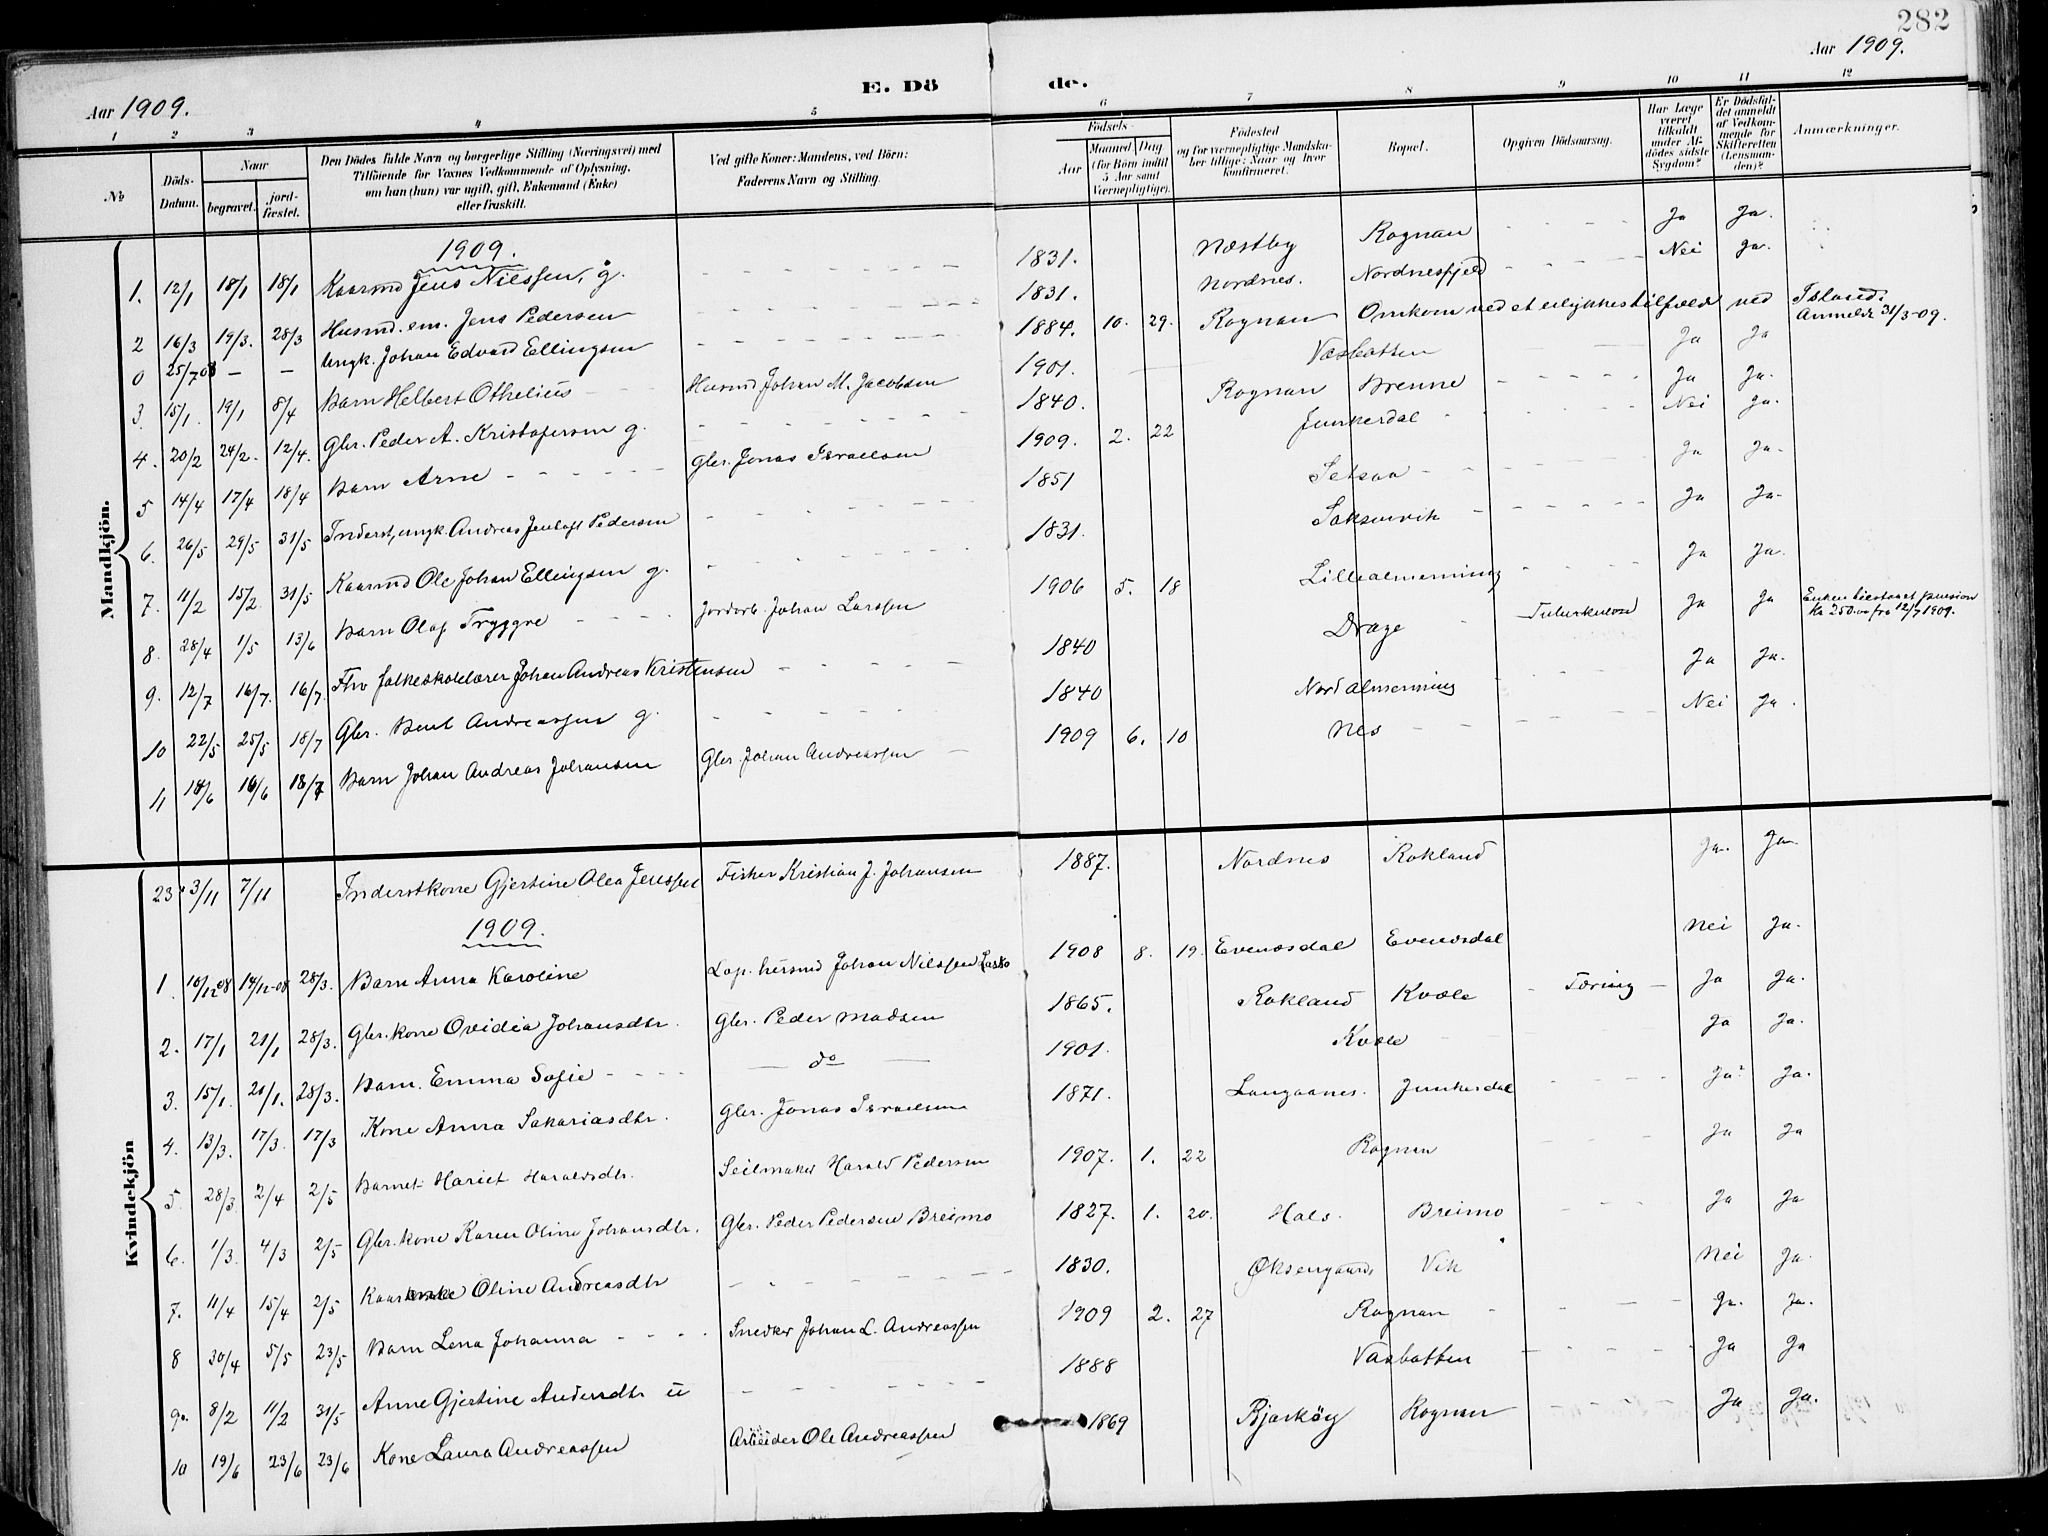 282
Aar 1909.
E. Dö de.
Aar 1909.
1 2 3 4 5 6 7 8 9 10 11 12
No
Döds-Datum.
Naar
begravet. jord-fæstet.
Den Dödes fulde Navn og borgerlige Stilling (Næringsvei) med
Tilföiende for Voxnes Vedkommende af Oplysning,
om han (hun) var ugift, gift, Enkemand (Enke)
eller fraskilt.
Ved gifte Koner: Mandens, ved Börn:
Faderens Navn og Stilling.
Födsels-
Aar
Maaned Dag
(for Börn indtil
5 Aar samt
Værnepligtige).
Födested
og for værnepligtige Mandska-
ber tillige: Naar og hvor
konfirmeret.
Bopæl.
Opgiven Dödsaarsag.
Har Læge
været
tilkaldt
under Af-
dödes sidste
Sygdom?
Er Dödsfal-
det anmeldt
af Vedkom-
mende for
Skifteretten
(Lensman-
den)?
Anmærkninger.
Mandkjön.
1909.
1. 12/1 18/1 18/1 Kaarmd Jens Nilssen, g. 1831. Næstby Rognan Ja Ja.
2 16/3 19/3. 28/3 Husmd. em. Jens Pedersen 1831. Nordnes. Nordnesfjeld Nei Ja.
0 25/7 08 — — Ungk. Johan Edvard Ellingsen 1884. 10. 29. Rognan Omkom ved et ulykkestilfælde ved Island. Anmeldt 31/3-09.
3. 15/1. 19/1 8/4 Barn Helbert Othelius Husmd Johan M. Jacobsen 1901. Vasbotten Ja Ja
4. 20/2 24/2. 12/4. Gbr. Peder A. Kristofersen g. 1840. Rognan Brenne Ja Ja.
5 14/4 17/4 18/4 Barn Arne Gbr. Jonas Israelsen 1909. 2. 22 Junkerdal Nei Ja.
6. 26/5 29/5 31/5 Inderst, ungk. Andreas Jentoft Pedersen 1851 Setsaa Ja Ja.
7. 11/2 15/2. 31/5 Kaarmd Ole Johan Ellingsen g. 1831. Saksenvik Ja Ja.
8. 28/4 1/5 13/6 Barn Olaf Tryggve Jordarb. Johan Larssen 1906 5. 18 Lillealmenning Ja Ja.
9. 12/7 16/7. 16/7. Fhv folkeskolelærer Johan Andreas Kristensen 1840 Drage Tuberkulose Ja Ja Enken tilstaaet pension Kr 250.00 fra 12/7 1909.
10 22/5 25/5 18/7 Gbr. Bent Andreassen g. 1840 Nordalmenning Ja Ja.
11 18/6 16/6 18/7 Barn Johan Andreas Johansen Gbr. Johan Andreassen 1909 6. 10 Nes Nei Ja.
Kvindekjön
23 3/11 7/11 Inderstkone Gjertine Olea Jenssen Fisker Kristian J. Johansen 1887. Nordnes Rokland Ja. Ja
1909.
1. 10/12 08 14/12-08 28/3. Barn Anna Karoline Lap. husmd Johan Nilssen Lasko 1908 8. 19. Evenesdal Evenesdal Nei Ja.
2. 17/1 21/1 28/3. Gbr. kone Ovidia Johansdtr. Gbr. Peder Madsen 1865. Rokland Kvæle Tæring Ja Ja.
3. 15/1. 21/1. 28/3. Barn. Emma Sofie do 1901. Kvæle Ja Ja.
4. 13/3. 17/3. 17/3 Kone Anna Sakariasdtr. Gbr. Jonas Israelsen 1871. Langaanes. Junkerdal Ja Ja.
5 28/3 2/4 2/5 Barnet Hariet Haraldsdtr. Seilmaker Harald Pedersen 1907. 1. 22 Rognan Ja Ja
6. 1/3. 4/3 2/5 Gbr. kone Karen Oline Johansdtr. Gbr. Peder Pedersen Breimo 1827. 1. 20. Hals. Breimo Ja Ja
7. 11/4 15/4 2/5 Kaarenke Oline Andreasdtr 1830. Øksengaard Vik Nei Ja.
8 30/4 5/5 23/5 Barn Lena Johanna Snedker Johan L. Andreassen 1909 2. 27 Rognan Ja. Ja.
9. 8/2 11/2 31/5 Anne Gjertine Andersdtr u 1888 Vasbotten Ja Ja
10 19/6 23/6 23/6 Kone Laura Andreassen Arbeider Ole Andreassen 1869 Bjarköy Rognan Ja Ja.